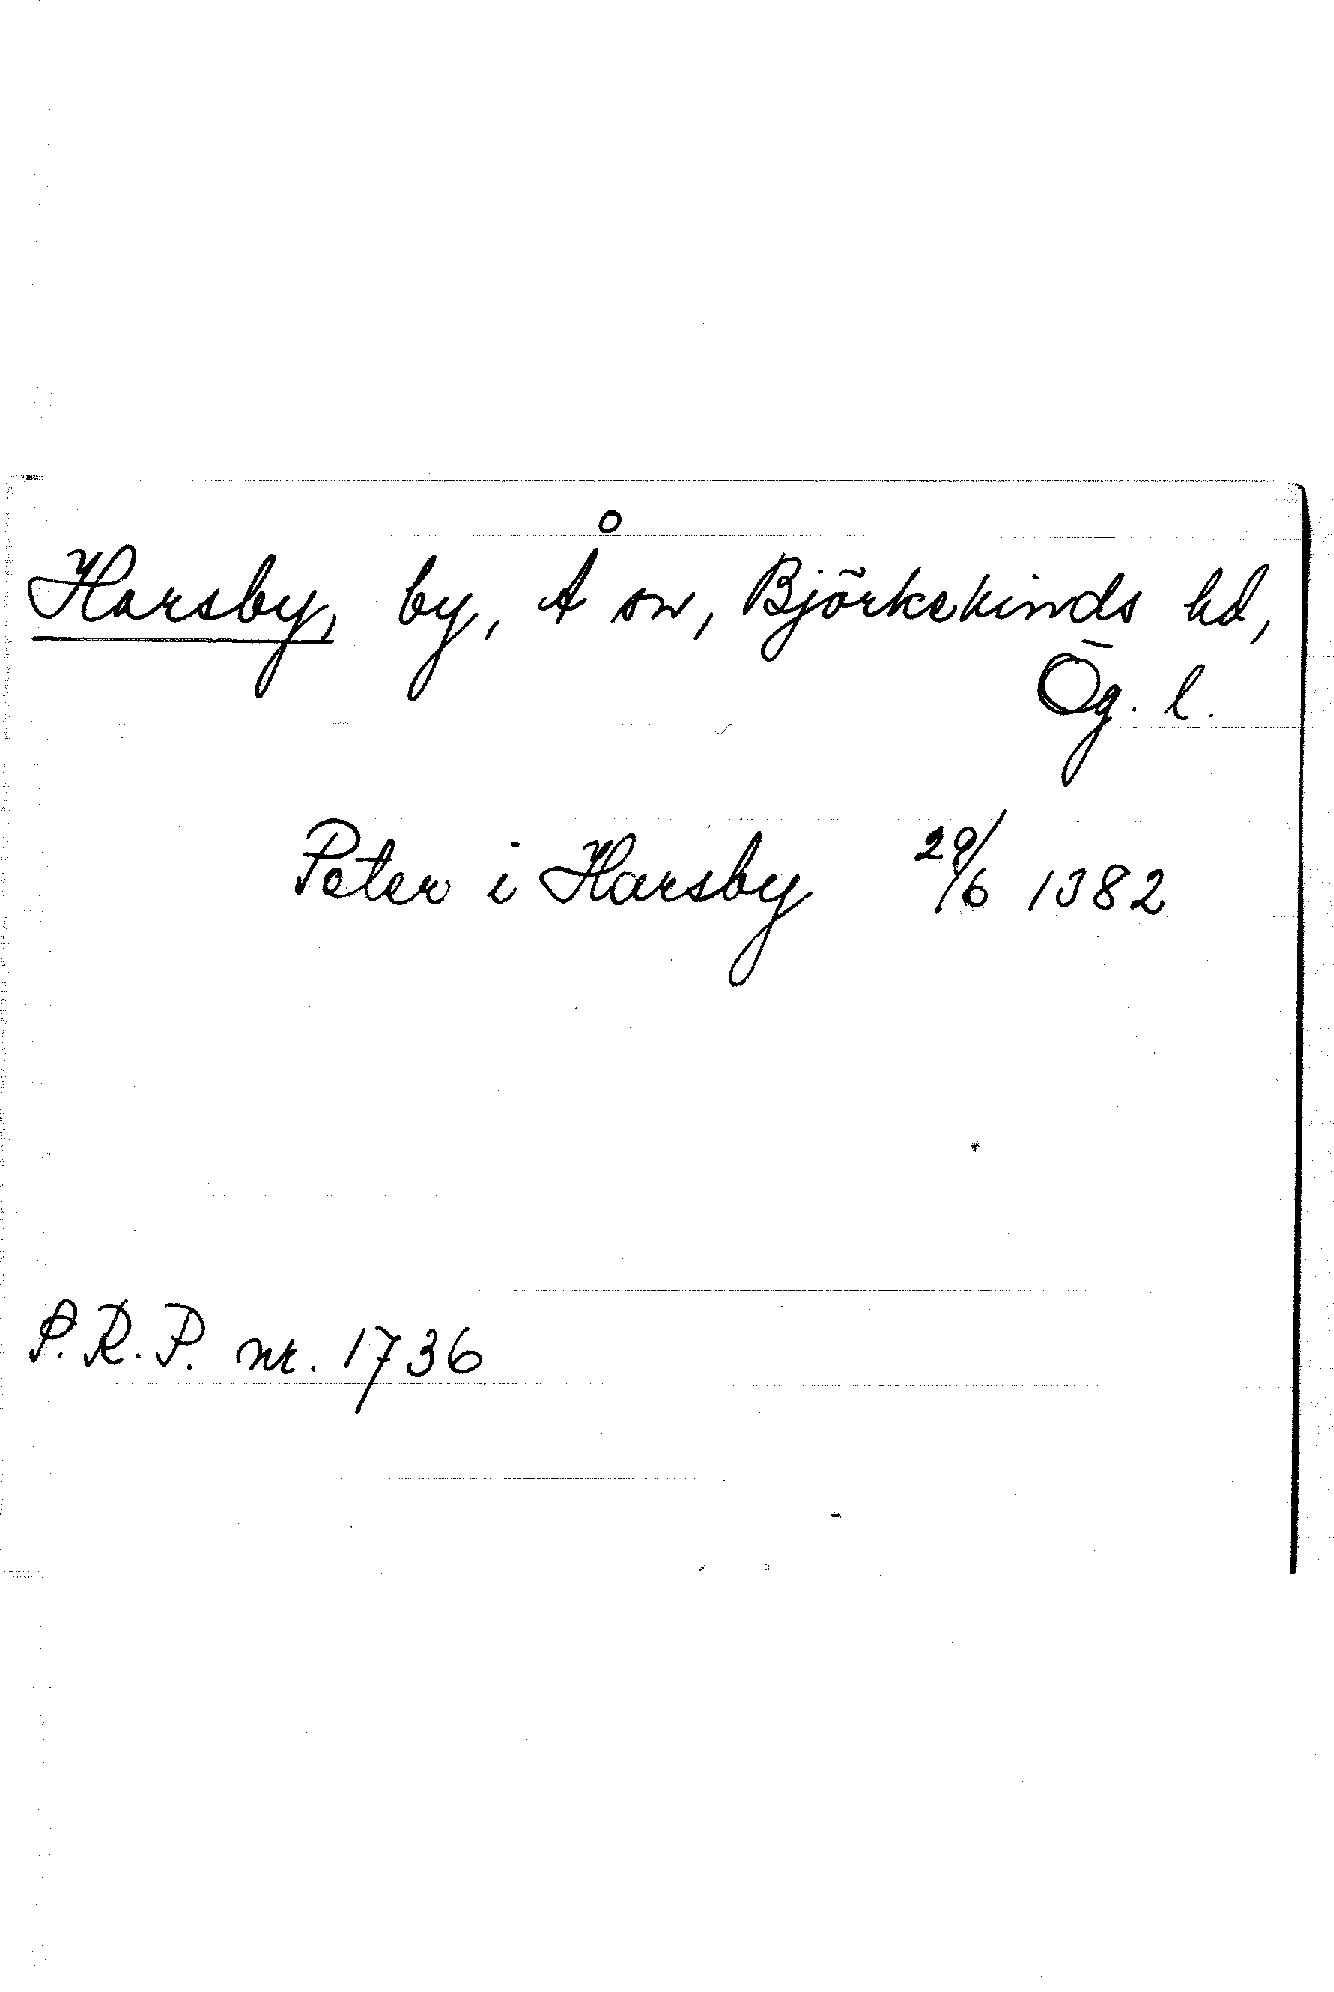 Harsby, by, Å sn, Björkekinds hd,
Ög. l.
Peter i Harsby 29/6 1382
P.R.P. nr. 1736